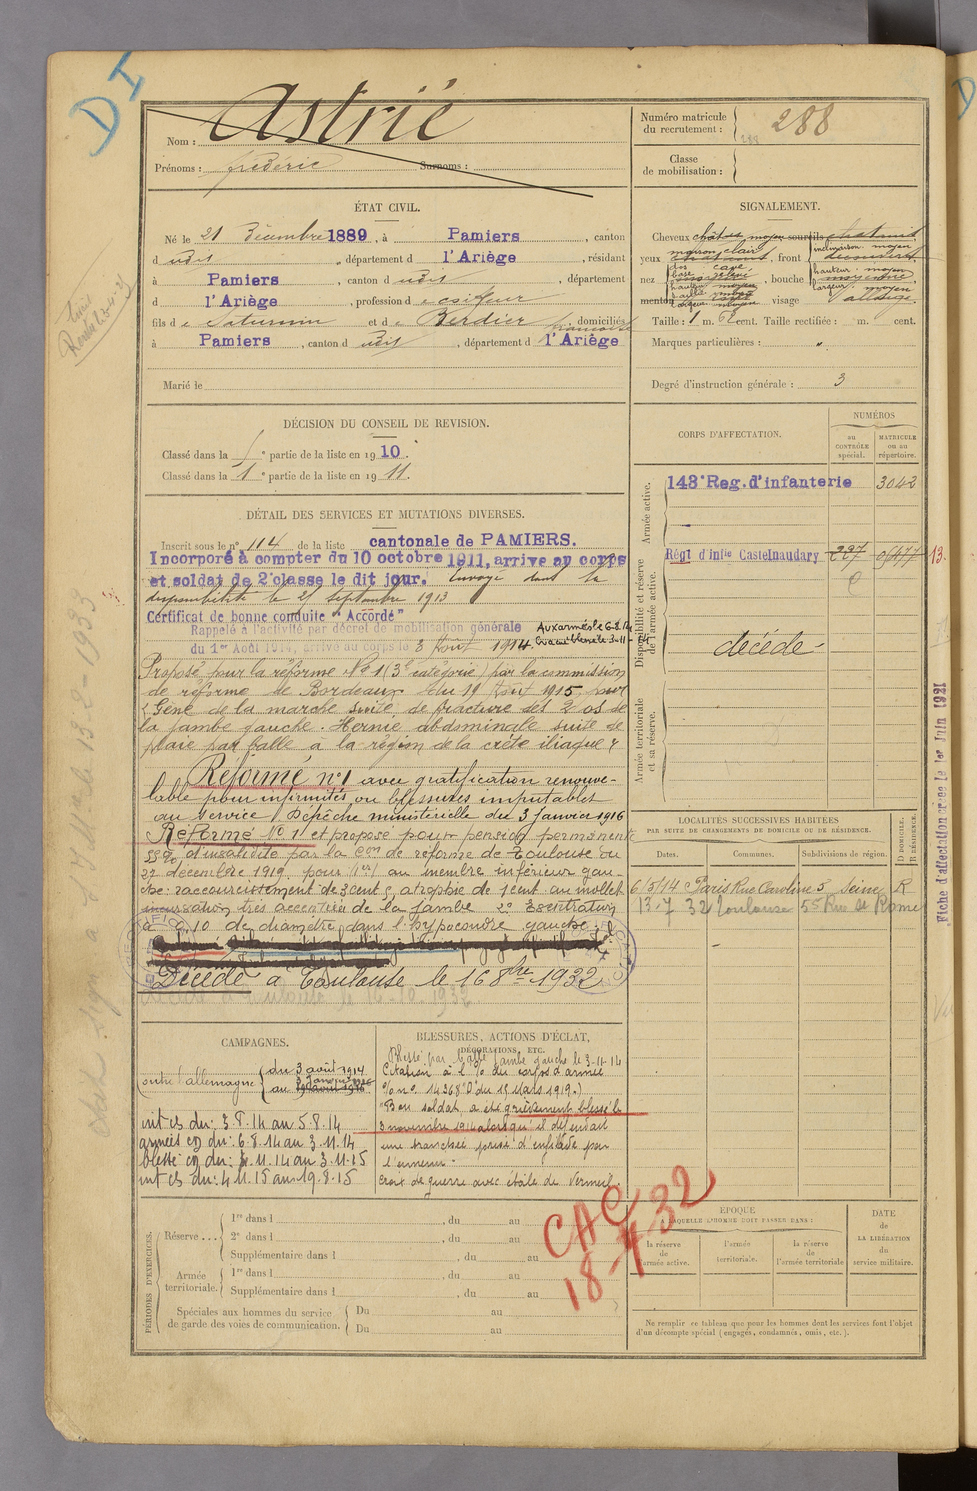 DI
Nom : Astrié
Prénoms : frédéric Surnoms :
Numéro matricule
du recrutement : 288
288
Classe
de mobilisation :
ÉTAT CIVIL.
Né le 21 Décembre 1889, à Pamiers, canton
d udit, département d l'Ariège, résidant
à Pamiers, canton d udit, département
d l'Ariège, profession d e coiffeur
fils d e Saturnin et d e Berdier françoise, domiciliés
à Pamiers, canton d udit, département d l'Ariège
Marié le
SIGNALEMENT.
Cheveux châtns moyen sourcils chatains
yeux marron clair, front inclinaison moyen
découvert
nez dos cave
base relevé
hauteur moyen
largeur moyen
, bouche hauteur : moyen
moyenne
largeur : moyen
menton visage allongé
Taille : 1 m. 62 cent. Taille rectifiée : m. cent.
Marques particulières : "
Degré d'instruction générale : 3
DÉCISION DU CONSEIL DE REVISION.
Classé dans la 1e partie de la liste en 1910.
Classé dans la 1e partie de la liste en 1911.
CORPS D'AFFECTATION.
NUMÉROS
au
CONTRÔLE
spécial.
MATRICULE
ou au
répertoire.
Armée active.
143e Reg. d'infanterie 3042
Disponibilité et réserve
de l'armée active.
Régt d'infie Castelnaudary 227 13.
décédé
Armée territoriale
et sa réserve.
DÉTAIL DES SERVICES ET MUTATIONS DIVERSES.
Inscrit sous le n° 114 de la liste cantonale de PAMIERS.
Incorporé à compter du 10 octobre 1911, arrive au corps
et soldat de 2e classe le dit jour. Envoyé dans la
disponibilité le 25 septembre 1913
Certificat de bonne conduite "Accordé"
Rappelé à l'activité par décret de mobilisation générale
du 1er Août 1914, arrivé au corps le 3 Août 1914. Aux armées le 6-8-14
Evacué blessé le 3-11-14
Proposé pour la réforme N° 1 (3e catégorie) par la commission
de réforme de Bordeaux du 19 Août 1915 pour
"Gêne de la marche suite de fracture des 2 os de
la jambe gauche. Hernie abdominale suite de
plaie par balle à la région de la crête iliaque"
Réformé n° 1 avec gratification renouve-
lable pour infirmités ou blessures imputables
au service. Dépêche ministérielle du 3 Janvier 1916
Réformé N° 1 et proposé pour pension permanente
55 % d'invalidité par la Con de réforme de Toulouse du
27 décembre 1919 pour 1° au membre inférieur gau-
che : raccourcissement de 3 cent, atrophie de 1 cent au mollet
incurvation très accentuée de la jambe 2° Eventration
de 0,10 de diamètre, dans l'hypocondre gauche
Décédé à Toulouse le 16 8bre 1932
Décédé à Toulouse le 16-10-1932
LOCALITÉS SUCCESSIVES HABITÉES
PAR SUITE DE CHANGEMENTS DE DOMICILE OU DE RÉSIDENCE.
Dates. Communes. Subdivisions de région. D DOMICILE. R RÉSIDENCE.
6/5/14 Paris Rue Caroline 5 Seine R
13-7 32 Toulouse 55 Rue St Rome
Fiche d'affectation créée le 1er Juin 1921
CAMPAGNES.
Contre l'allemagne du 3 août 1914
au 3 Janvier 1916
19 août 1916
int cs du : 3.8.14 au 5.8.14
armées cp du : 6.8.14 au 3.11.14
blessé cp du : 4.11.14 au 3.11.15
int cs du : 4.11.15 au 19.8.15
BLESSURES, ACTIONS D'ÉCLAT,
DÉCORATIONS, ETC.
Blessé par balle jambe gauche le 3-11-14
Citation à l'O/ du corps d'armée
O/ n° 14368 "D" du 15 Mars 1919.)
"Bon soldat, a été grièvement blessé le
3 novembre 1914 alors qu'il défendait
une tranchée prise d'enfilade par
l'ennemi".
Croix de guerre avec étoile de Vermeil.
CAC
18-7 32
PÉRIODES D'EXERCICES.
Réserve ... 1re dans l , du au
2e dans l , du au
Supplémentaire dans l , du au
Armée
territoriale. 1re dans l , du au
Supplémentaire dans l , du au
Spéciales aux hommes du service
de garde des voies de communication. Du au
Du au
EPOQUE
À LAQUELLE L'HOMME DOIT PASSER DANS :
la réserve
de
l'armée active.
l'armée
territoriale.
la réserve
de
l'armée territoriale
DATE
de
LA LIBÉRATION
du
service militaire.
Ne remplir ce tableau que pour les hommes dont les services font l'objet
d'un décompte spécial (engagés, condamnés, omis, etc.).